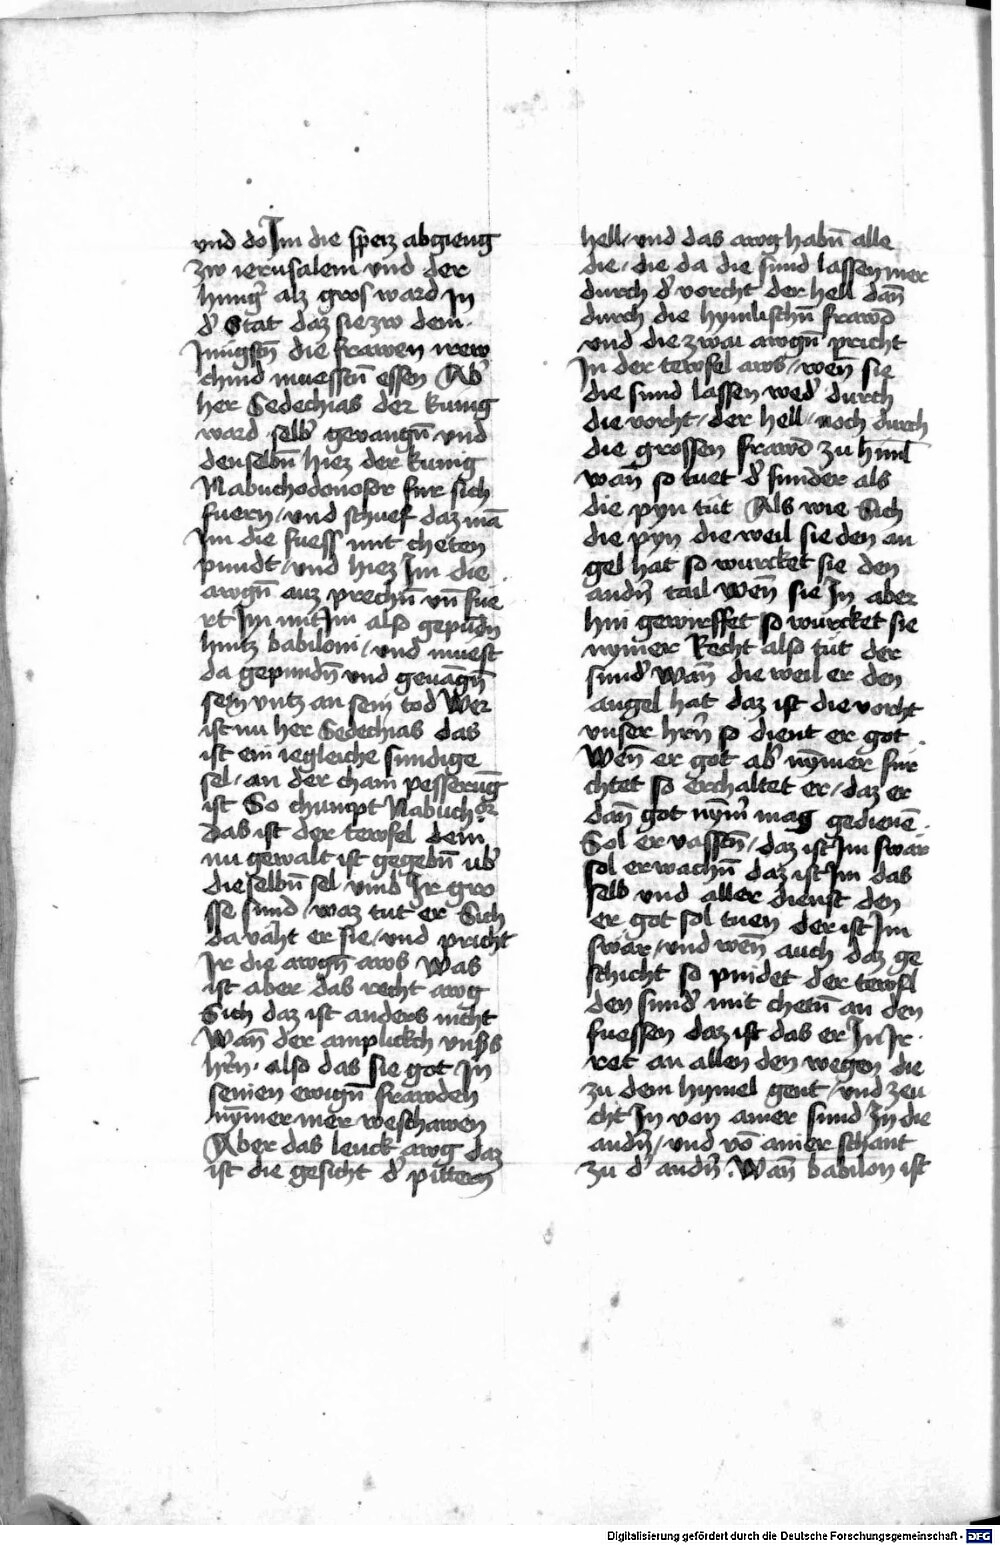 vnd do Im die speiz abgieng
zw ierusalem vnd der
hung̉ alz gros ward in
d̉ Stat daz sie zw dem
Iungstn̄ die frawen irew
chind muesstn̄ essen Ab̉
her Sedechias der kunig
ward selb̉ geuangn̄ vnd
denselbn̄ hiez der kunig
Nabuchodonosor fur sich
fuern / vnd schuef daz mā
Im die fuess mit cheten
pundt / vnd hiez Im die
awgn̄ auz prechn̄ vn̄ fue
rt Im mit Im also gepūdn
hintz babiloni / vnd muest
da gepundn̄ vnd geuāgn̄
sein vntz an sein tod Wer
ist nu her Sedechias das
ist ein iegleiche sundige
sel / an der chain pesserūg
ist So chumpt Nabuchdr
Das ist der tewfel dem
nu gewalt ist gegebn̄ ub̉
dieselbn̄ sel vmb Ir gro
sse sund / waz tut er Sich
da vaht er sie / vnd pricht
Ir die awgn̄ aws Was
ist aber das recht awg
Sich daz ist anders nicht
Wan̄ der anplickch vnss̉s
hr̄n · also das sie got in
seinen ewign̄ frawden
nȳmer mer beschawen
Aber das lenck awg daz
ist die gesicht d̉ pittern
hell / vnd das awg habn̄ alle
die / die da die sund lassen mer
durch d̉ vorcht der hell dan̄
durch die hymlischn̄ frawd
vnd die zwai awgn̄ pricht
In der tewfel aws / wen̄ sie
die sund lassen wed̉ durch
die vorht / der hell / noch durch
die grossen frawd zu himl
wan̄ so tuet d̉ sunder als
die pyn tut Als wie Sich
die pyn die weil sie den an
gel hat so wurcket sie den
andn̉ tail Wen̄ sie In aber
hin gewirffet so wurcket sie
nymer Recht also tut der
sund̉ Wan̄ die weil er den
angel hat daz ist die vorht
vnser hr̄n so dient er got
Wen̄ er got ab̉ nȳmer fur
chtet so erchaltet er / daz er
dan̄ got nȳm̉ mag gedienē
Sol er vasstn̄ / daz ist Im swar
sol er wachn̄ daz ist Im das
selb vnd aller dienst den
er got sol tuen der ist Im
swar / vnd wen̄ auch daz ge
schicht so pindet der tewfl
den sund̉ mit chetn̄ an den
fuessen daz ist das er In Ir
ret an allen den wegen die
zu dem hymel gent / vnd zeu
cht In von ainer sund In die
andn̉ / vnd vō ainer schant
zu d̉ andn̉ . Wan̄ babilon ist
Digitalisierung gefördert durch die Deutsche Forschungsgemeinschaft - DFG